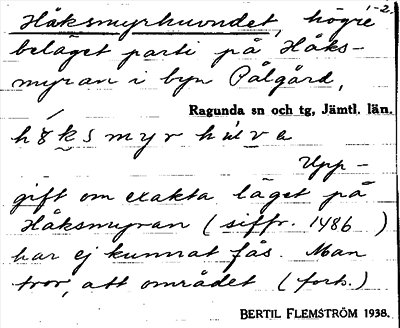 1-2.
Håksmyrhuvudet, högre
beläget parti på Håks-
myran i byn Pålgård,
Ragunda sn och tg, Jämtl. län.
Upp-
gift om exakta läget på
Håksmyran (siffr. 1486)
har ej kunnat fås. Man
tror, att området (forts.)
BERTIL FLEMSTRÖM 1938.